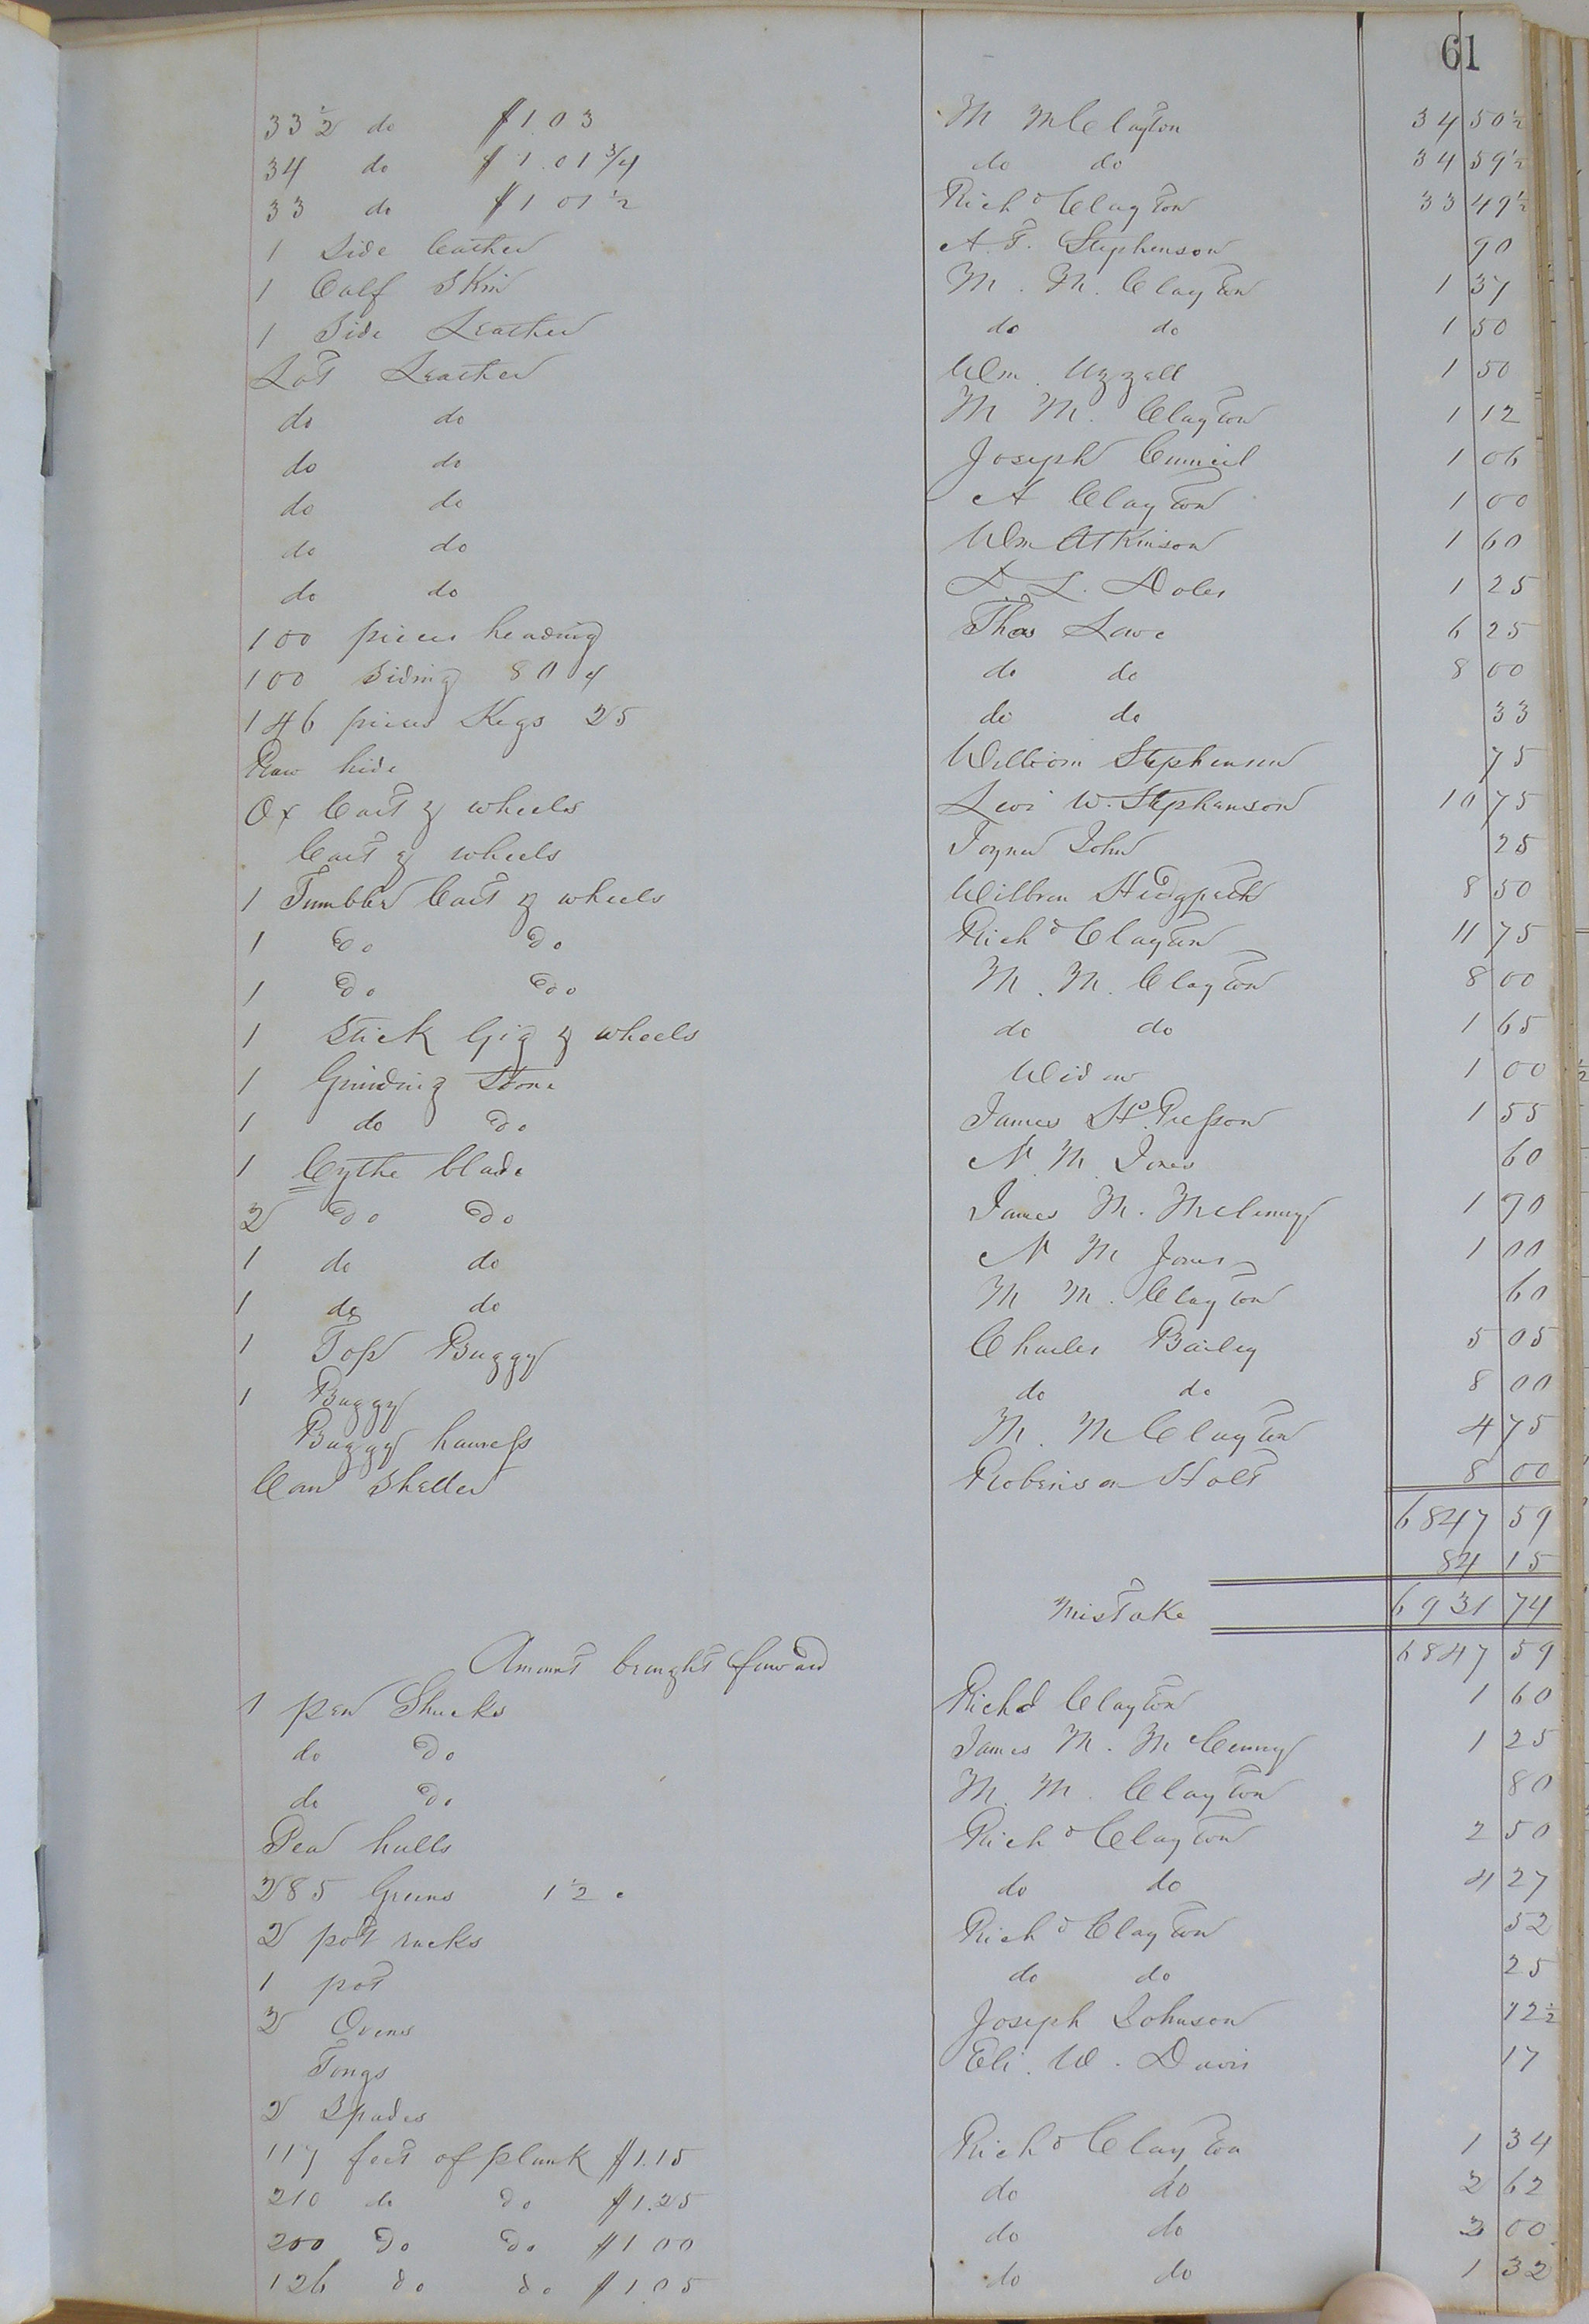 61
33½ do $1.03 M McClayton 34 50½
34 do $1.01¾ do do 34 59½
33 do $1 01½ Richd Clayton 33 49½
1 Side leather A. T. Stephenson 90
1 Calf Skin M. M. Clayton 1 37
1 Side Leather do do 1 50
Lot Leather Wm. Uzzell 1 50
do do M M. Clayton 1 12
do do Joseph Council 1 06
do do A Clayton 1 00
do do Wm Atkinson 1 60
do do D. L. Doles 1 25
100 pieces heading Thos Love 6 25
100 Siding 80 do do 8 00
146 pieces Kegs 25 do do 33
Raw hide William Stephenson 75
Ox Cart & wheels Levi W. Stephenson 10 75
Cart & wheels Joyner John 25
1 Tumbler Cart & wheels Wilbron Hedgpeth 8 50
1 Do Do Richd Clayton 11 75
1 Do Do M. M. Clayton 8 00
1 Stick Gig & wheels do do 1 65
1 Grinding Stone Widow 1 00
1 do Do James H. Presson 1 55
1 Cythe blade N. M. Jones 60
2 Do Do James M. McClenny 1 70
1 do do N M Jones 1 00
1 do do M M. Clayton 60
1 Top Buggy Charles Bailey 5 05
1 Buggy do do 8 00
Buggy harness M. M Clayton 4 75
Corn Sheller Robinson Holt 8 00
6847 59
84 15
Mistake 6931 74
Amount brought forward 6847 59
1 pen Shucks Richd Clayton 1 60
do Do James M. McClenny 1 25
do Do M. M. Clayton 80
Pea hulls Richd Clayton 2 50
285 Greens 1½ c do do 4 27
2 pot racks Richd Clayton 52
1 pot do do 25
2 Ovens Joseph Johnson 12½
Tongs Eli. W. Davis 17
2 Spades
117 feet of plank $1.15 Richd Clayton 1 34
210 do Do $1.25 do do 2 62
200 Do Do $1 00 do do 2 00
126 Do do $1.05 do do 1 32